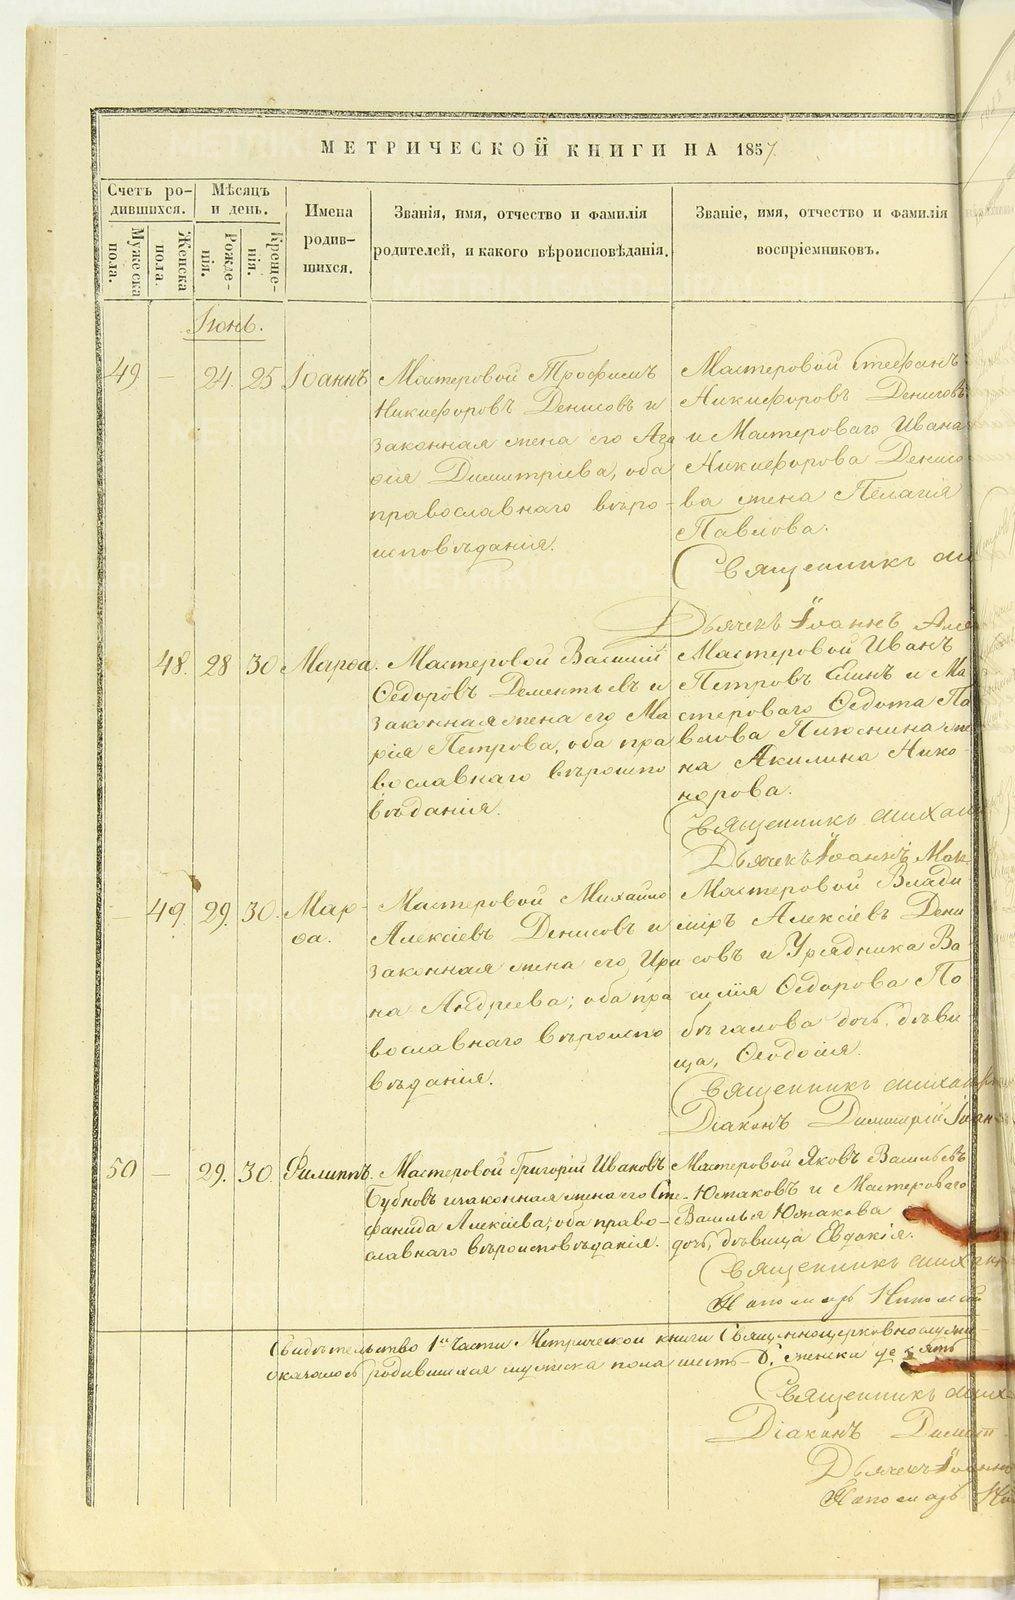 МЕТРИЧЕСКОЙ КНИГИ НА 1857
Счетъ ро-
дившихся.
Мужеска
пола.
Женска
пола.
Мѣсяцъ
и день.
Рожде-
нія.
Креще-
нія.
Имена
родив-
шихся.
Званія, имя, отчество и фамилія
родителей, и какого вѣроисповѣданія.
Званіе, имя, отчество и фамилія
воспріемниковъ.
Іюнь.
49 — 24 25 Іоаннъ
Мастеровой Трофимъ
Никифоровъ Денисовъ и
законная жена его Ага
фія Димитріева, оба
православнаго вѣро-
исповѣданія.
Мастеровой Стефанъ
Никифоровъ Денисовъ
и Мастероваго Ивана
Никифорова Денисо-
ва жена Пелагія
Павлова.
Священникъ
Дьячекъ Іоаннъ
48. 28 30 Марфа.
Мастеровой Василій
Ѳедоровъ Дементьевъ и
законная жена его Ма
рія Петрова, оба пра
вославнаго вѣроиспо
вѣданія.
Мастеровой Иванъ
Петровъ Елинъ и Ма
стероваго Ѳедота Па
влова жена
на Акилина Нико-
норова.
Священникъ Михаи
Дьячекъ Іоаннъ Мак
— 49 29. 30. Мар-
фа.
Мастеровой Михайло
Алексіевъ Денисовъ и
законная жена его Ири
на Андреева; оба пра
вославнаго вѣроиспо
вѣданія.
Мастеровой Влади-
міръ Алексіевъ Дени
совъ и Урядника Ва-
силія Ѳедорова По
бѣгалова дочь, дѣви-
ца, Ѳеодосія.
Священникъ Михаи
Діаконъ Димитрій Іоан-
50 — 29. 30. Филиппъ.
Мастеровой Григорій Ивановъ
Бубновъ и законная жена его Сте-
фанида Алексіева; оба право-
славнаго вѣроисповѣданія.
Мастеровой Яковъ Васильевъ
Южаковъ и Мастероваго
Василья Южакова
дочь, дѣвица Евдокія.
Священникъ Михаи
Пономарь Николай
Свидѣтельство 1й части Метрической книги Священноцерковнослужи
оказалось родившихся мужеска пола шесть – 6, женска
Священникъ Мих
Діаконъ Димит
Дьячекъ Іоаннъ
Пономарь Ни